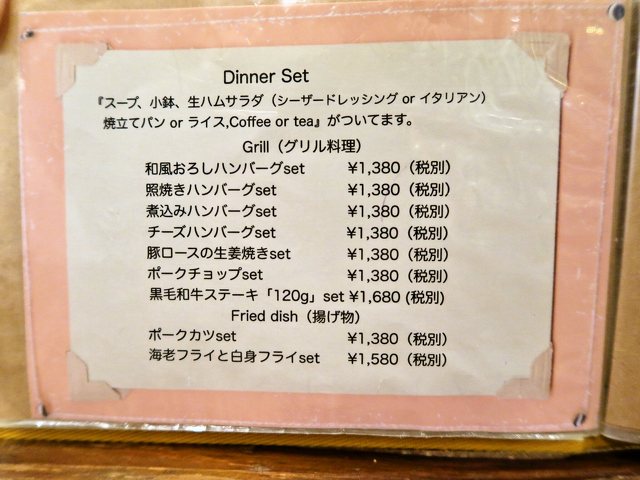 Dinner Set
『スープ、小鉢、生ハムサラダ（シーザードレッシング or イタリアン）
焼立てパン or ライス,Coffee or tea』がついてます。
Grill（グリル料理）
和風おろしハンバーグset ¥1,380（税別）
照焼きハンバーグset ¥1,380（税別）
煮込みハンバーグset ¥1,380（税別）
チーズハンバーグset ¥1,380（税別）
豚ロースの生姜焼きset ¥1,380（税別）
ポークチョップset ¥1,380（税別）
黒毛和牛ステーキ「120g」set ¥1,680 (税別)
Fried dish（揚げ物）
ポークカツset ¥1,380（税別）
海老フライと白身フライset ¥1,580（税別）